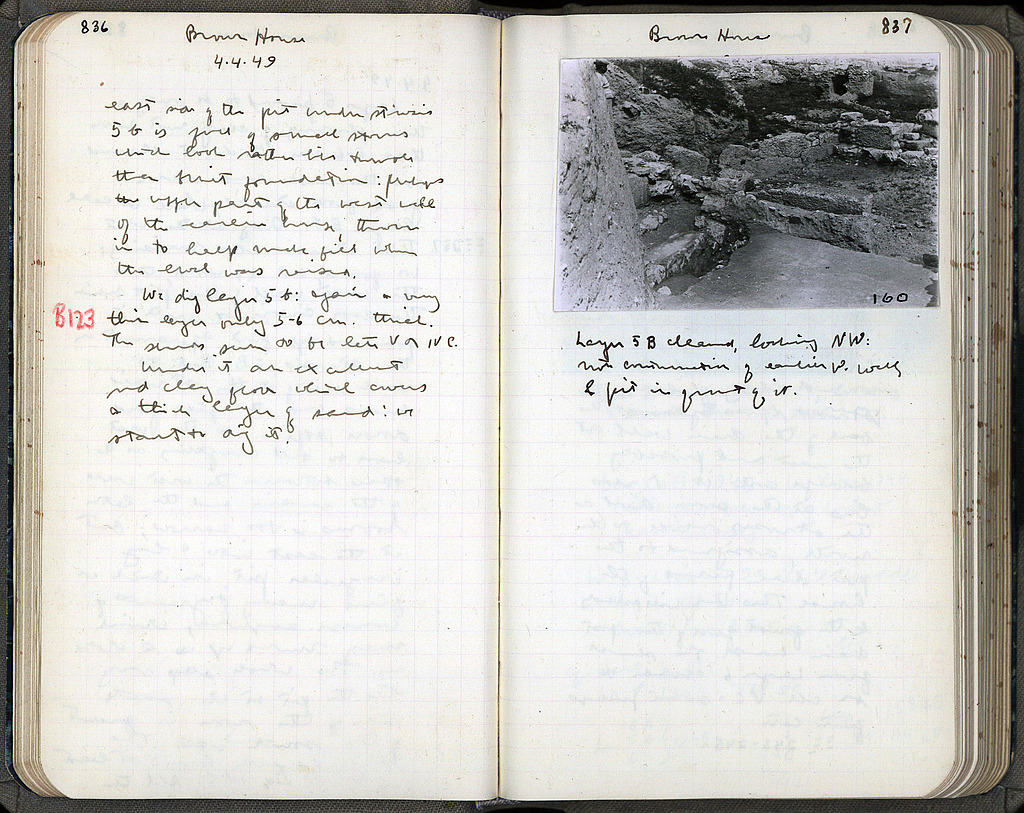 836
Brown House
4.4.49
east side of the pit under stereo
5 b is full of small stones
which look rather like tumble
than strict foundation: perhaps
the upper part of the west wall
of the earlier house, thrown
in to help make fill when
the level was raised.
We dig layer 5 b: again a very
B123
thin layer only 5-6 cm. thick.
The sherds seem to be late V or IV c.
Under it an excellent
red clay floor which covers
a thick layer of sand: we
start to dig it.
837
Brown House
160
Layer 5 B cleared, looking NW:
note continuation of earlier W. wall
& pit in front of it.